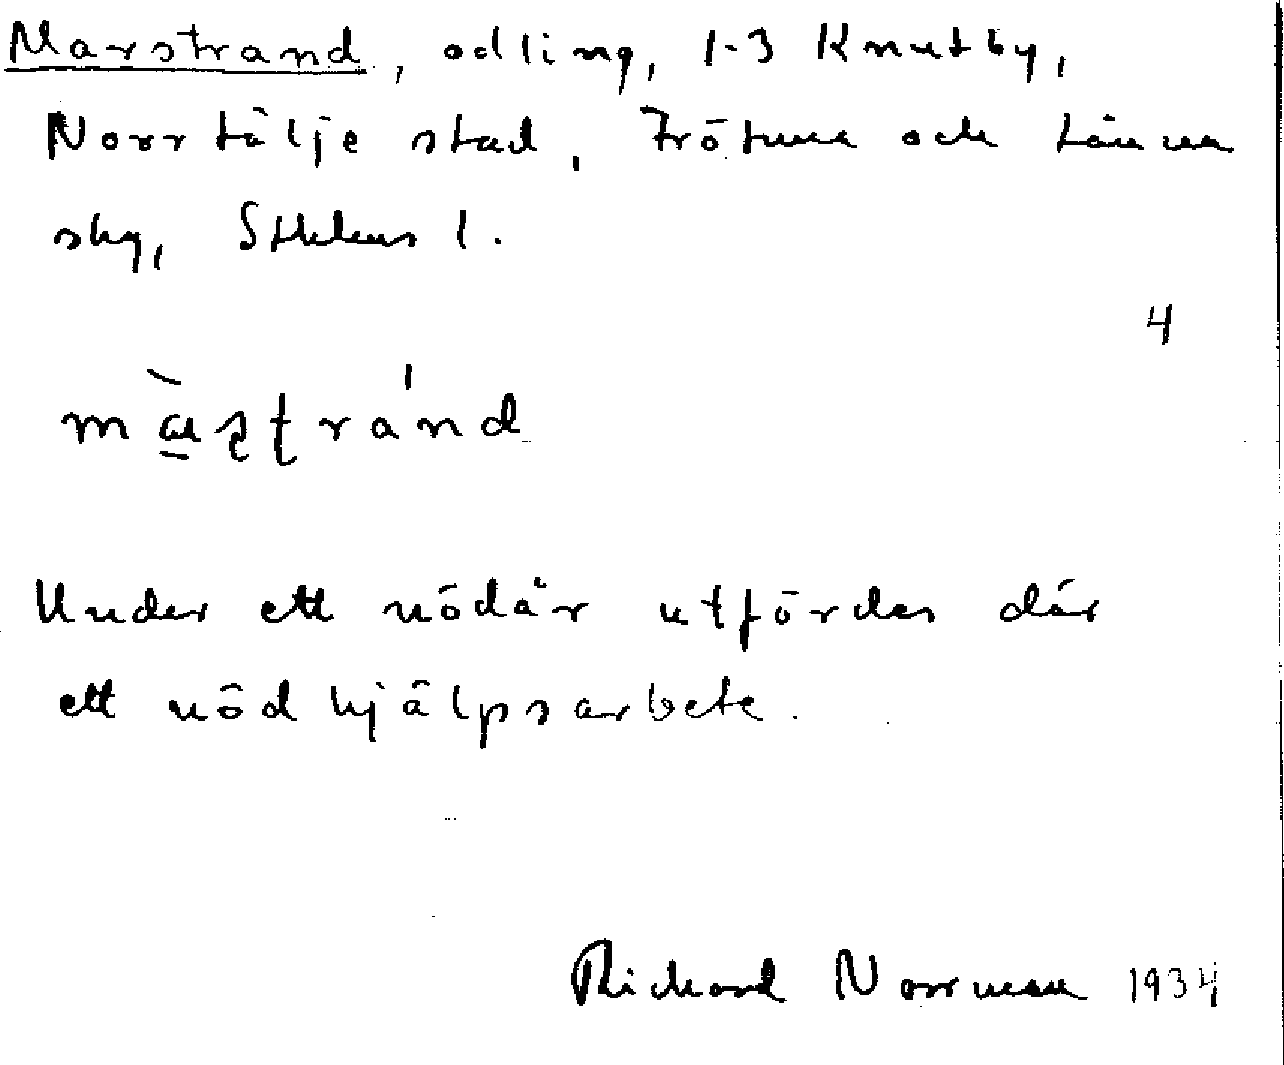 Marstrand, odling, 1-3 Knutby,
Norrtälje stad, Frötuna och Länna
skg, Sthlms l.
4
màs̩t̩ránd
Under ett nödår utfördes där
ett nödhjälpsarbete.
Richard Norrman 1934